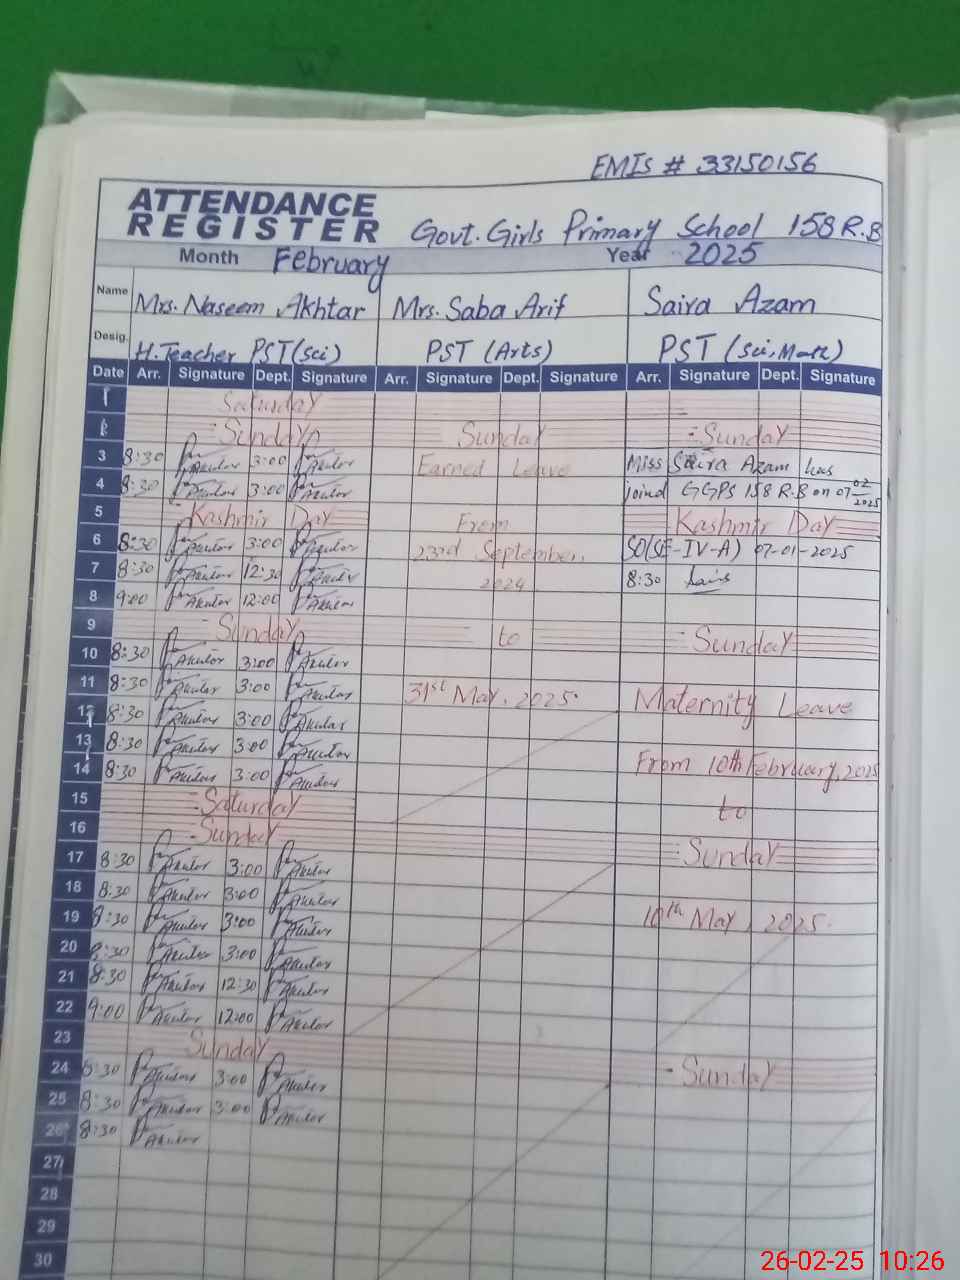 EMIS # 33150156
ATTENDANCE
REGISTER Govt. Girls Primary School 158 R.B
Month February Year 2025
Name Mrs. Naseem Akhtar Mrs. Saba Arif Saira Azam
Desig. H.Teacher PST(Sci) PST (Arts) PST (Sci, Math)
Date Arr. Signature Dept. Signature Arr. Signature Dept. Signature Arr. Signature Dept. Signature
1 Saturday
Sunday Sunday Sunday
3 8:30 Akhtar 3:00 Akhtar Earned Leave Miss Saira Azam has
4 8:30 Akhtar 3:00 Akhtar joined GGPS 158 R.B on 07-02-2025
5 Kashmir Day From Kashmir Day
6 8:30 Akhtar 3:00 Akhtar 23rd September, SO(SE-IV-A) 07-01-2025
7 8:30 Akhtar 12:30 Akhtar 2024 8:30
8 9:00 Akhtar 12:00 Akhtar
9 Sunday to Sunday
10 8:30 Akhtar 3:00 Akhtar
11 8:30 Akhtar 3:00 Akhtar 31st May, 2025. Maternity Leave
12 8:30 Akhtar 3:00 Akhtar
13 8:30 Akhtar 3:00 Akhtar From 10th February, 2025
14 8:30 Akhtar 3:00 Akhtar
15 Saturday to
16 Sunday Sunday
17 8:30 Akhtar 3:00 Akhtar
18 8:30 Akhtar 3:00 Akhtar
19 8:30 Akhtar 3:00 Akhtar 10th May, 2025.
20 8:30 Akhtar 3:00 Akhtar
21 8:30 Akhtar 12:30 Akhtar
22 9:00 Akhtar 12:00 Akhtar
23 Sunday Sunday
24 8:30 Akhtar 3:00 Akhtar
25 8:30 Akhtar 3:00 Akhtar
26 8:30 Akhtar
27
28
29
30
26-02-25 10:26